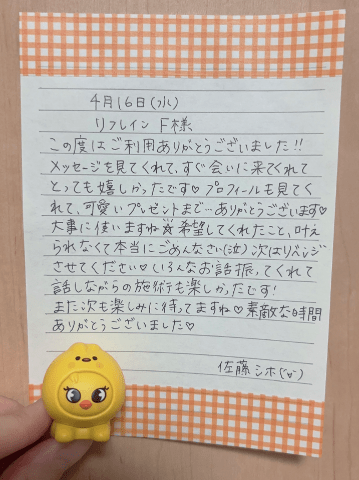 4月16日(水)
リフレイン F様
この度はご利用ありがとうございました!!
メッセージを見てくれて、すぐ会いに来てくれて
とっても嬉しかったです♡プロフィールも見てく
れて、可愛いプレゼントまで…ありがとうございます♡
大事に使いますね☆希望してくれたこと、叶え
られなくて本当にごめんなさい(泣)次はリベンジ
させてください♡いろんなお話振ってくれて
話しながらの施術も楽しかったです!
また次も楽しみに待ってますね♡素敵な時間
ありがとうございました♡
佐藤シホ(˘ᵕ˘)